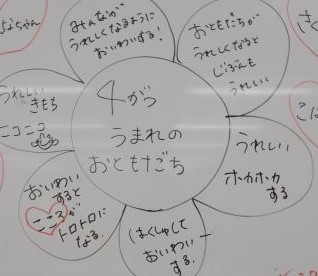 4がつ
うまれの
おともだち
みんなが
うれしくなるように
おいわいする!
おともだちが
うれしくなると
じぶんも
うれしい
うれしい
ホカホカ
する
はくしゅして
おいわい
する。
おいわい
すると
こころが
トロトロに
なる。
うれしい
きもち
ニコニコ
なちゃん